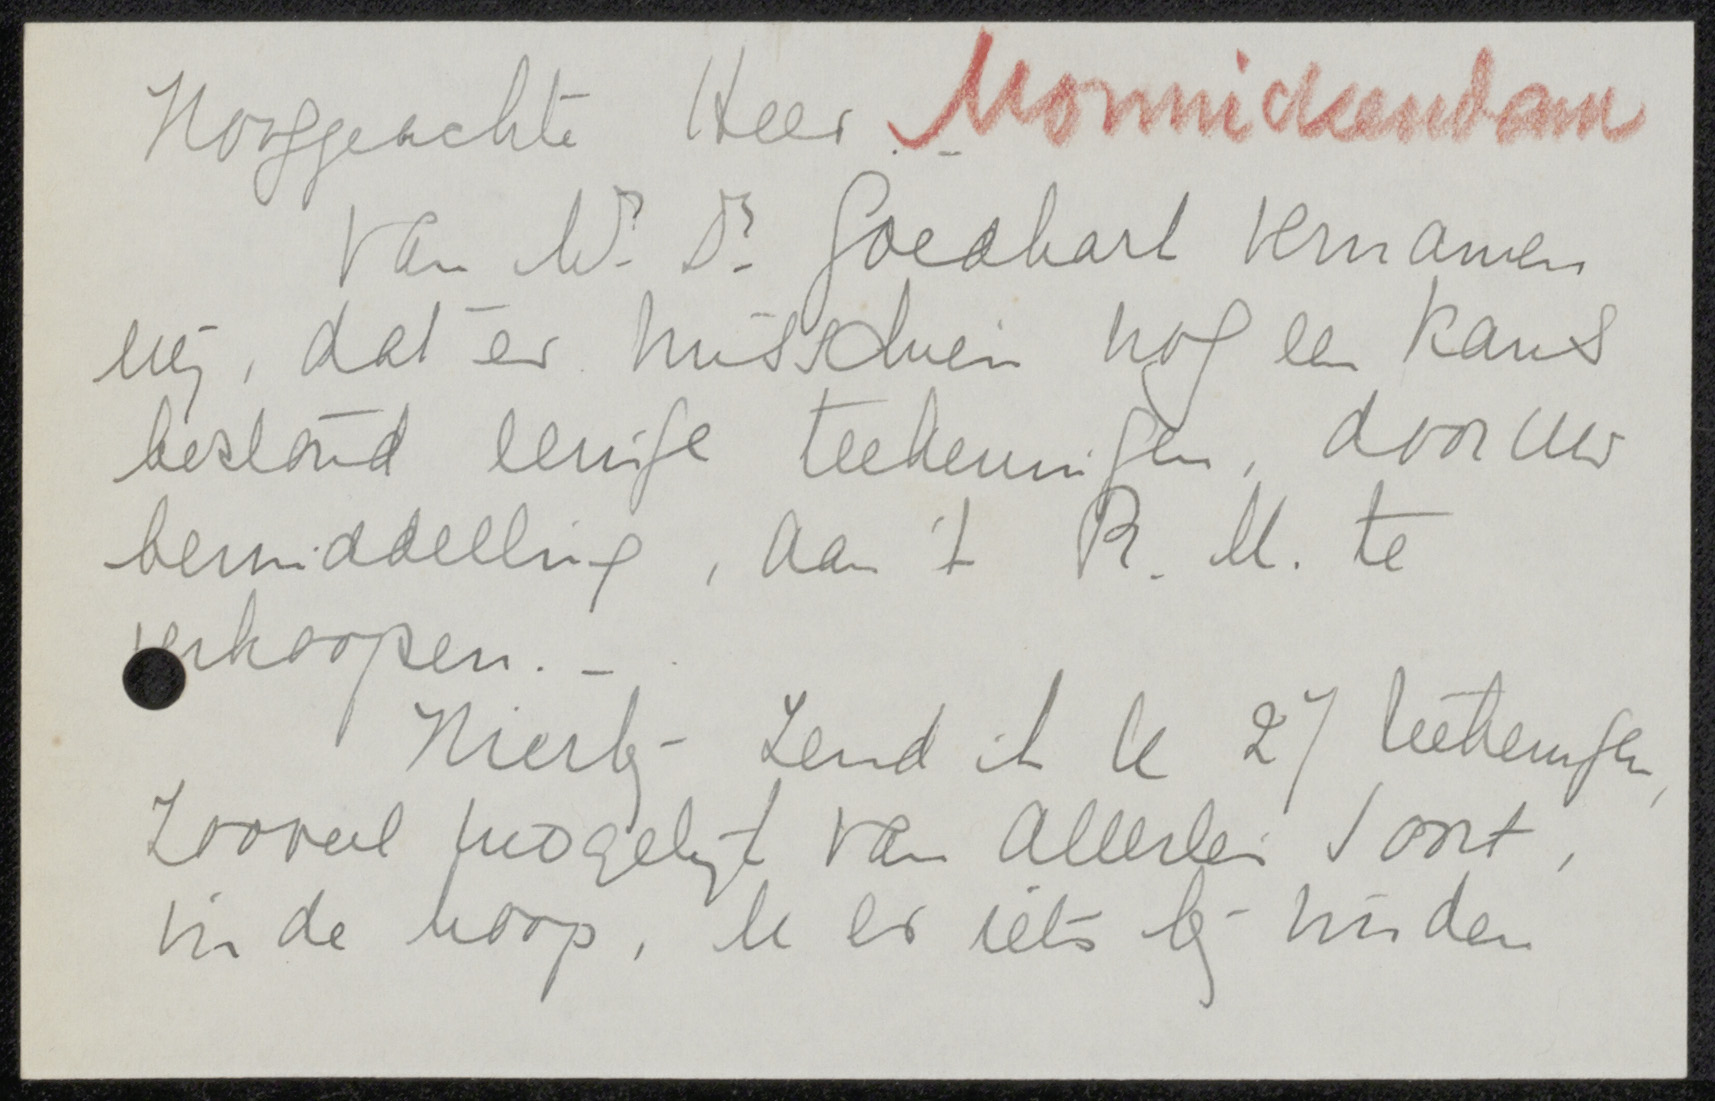 Hooggeachte Heer. – Monnickendam
Van Mr. Dr. Goedhart vernamen
wij, dat er misschien nog een kans
bestond eenige teekeningen, door uw
bemiddelling, aan 't R. M. te
verkoopen. –
Hierbij zend ik U 27 teekeningen,
zooveel mogelijk van allerlei soort,
in de hoop, U er iets bij vinden